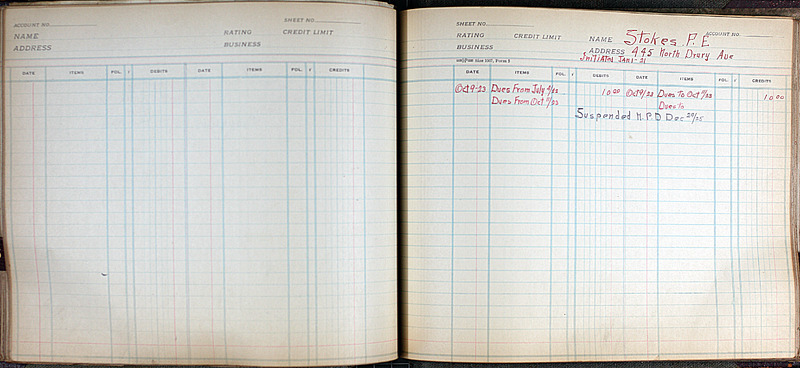 SHEET NO.
ACCOUNT NO.
NAME RATING CREDIT LIMIT
ADDRESS BUSINESS
DATE ITEMS FOL. √ DEBITS DATE ITEMS FOL. √ CREDITS
SHEET NO.
RATING CREDIT LIMIT NAME Stokes P. E ACCOUNT NO.
BUSINESS ADDRESS 445 North Drury Ave
Initiated Jan 1-21
DATE ITEMS FOL. √ DEBITS DATE ITEMS FOL. √ CREDITS
Oct 9-23 Dues From July 1/22 10 00 Oct 9/23 Dues To Oct 1/23 10 00
Dues From Oct 1/23 Dues to
Suspended N.P.D Dec 29/25